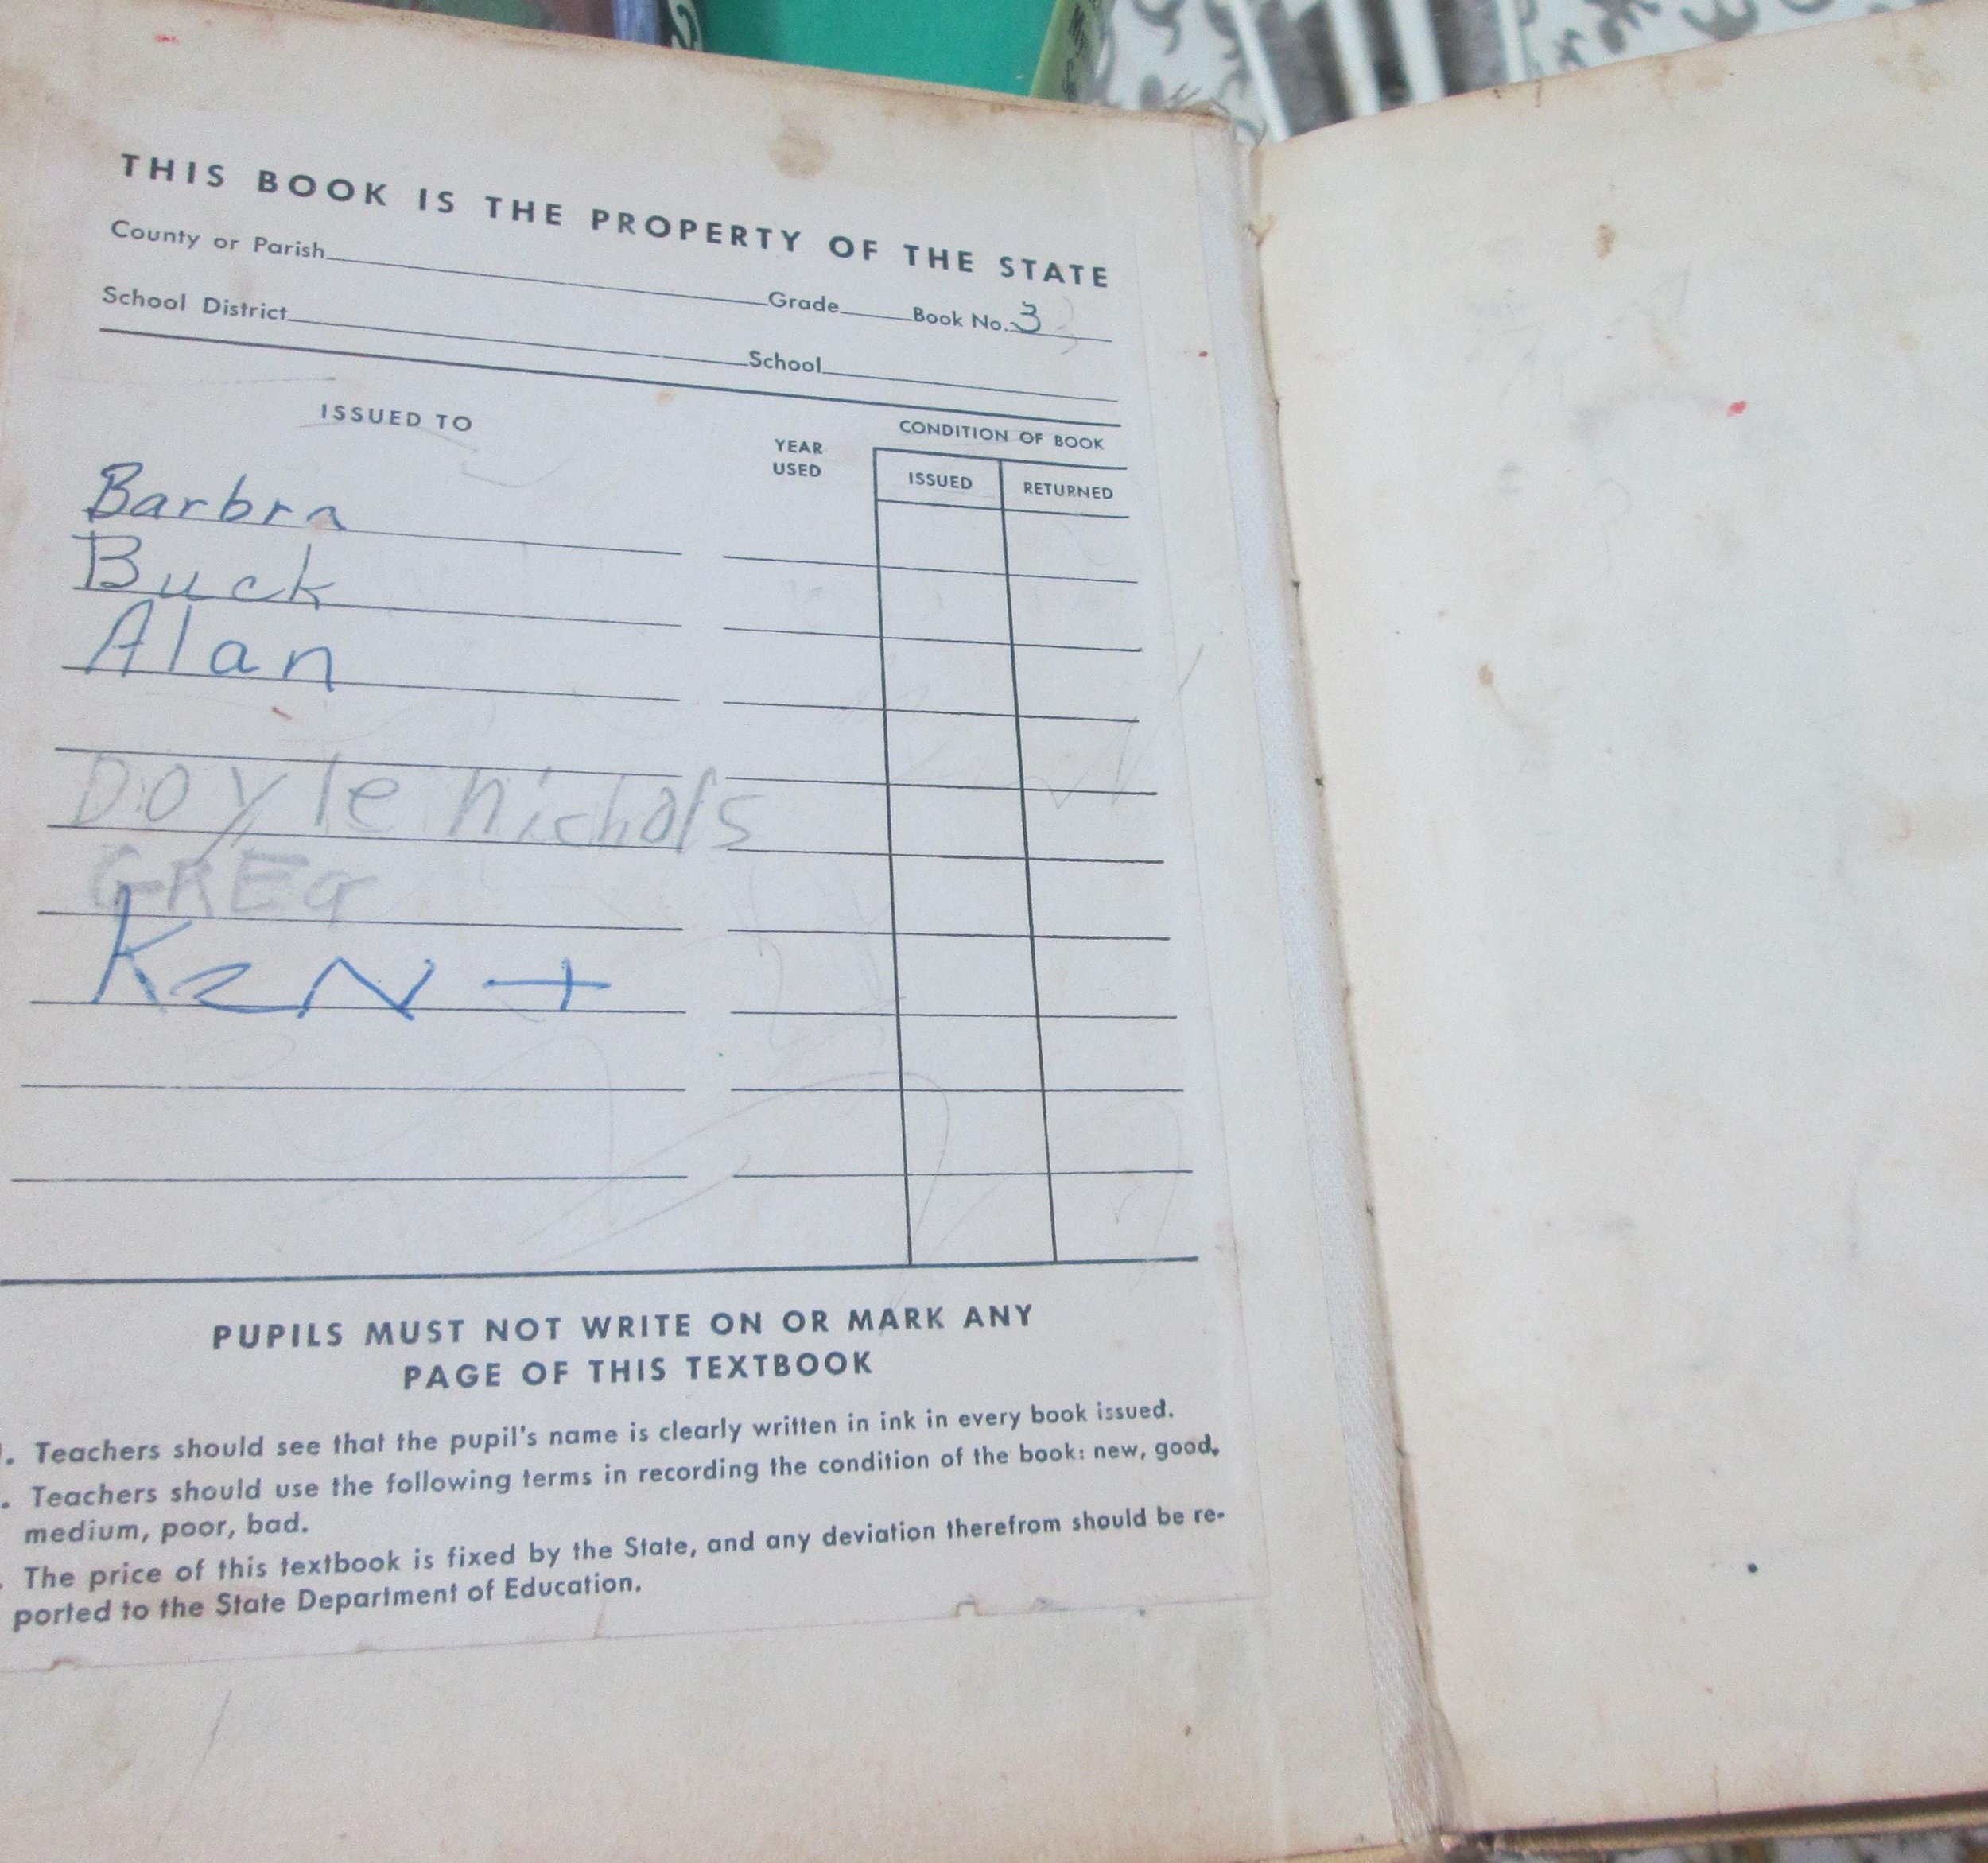 THIS BOOK IS THE PROPERTY OF THE STATE
County or Parish Grade Book No. 3
School District School
ISSUED TO
YEAR USED
CONDITION OF BOOK
ISSUED RETURNED
Barbra
Buck
Alan
Doyle nichols
GREG
KeNt
PUPILS MUST NOT WRITE ON OR MARK ANY
PAGE OF THIS TEXTBOOK
. Teachers should see that the pupil's name is clearly written in ink in every book issued.
. Teachers should use the following terms in recording the condition of the book: new, good,
medium, poor, bad.
. The price of this textbook is fixed by the State, and any deviation therefrom should be re-
ported to the State Department of Education.